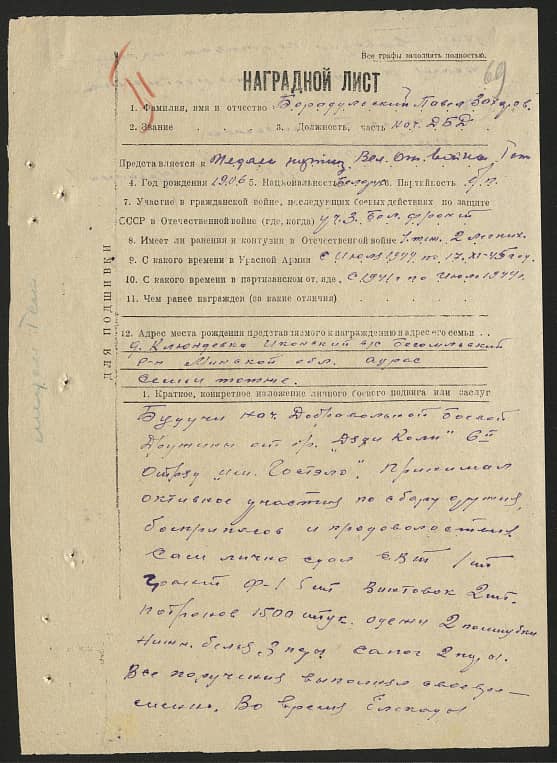 Все графы заполнять полностью.
69
11
НАГРАДНОЙ ЛИСТ
1. Фамилия, имя и отчество Борадульский Павел Захаров.
2. Звание 3. Должность, часть Нач. ДБД
Представляется к Медали партиз. Вел. От. войны, I ст
4. Год рождения 1906 5. Национальность белорус 6. Партейность б/п.
7. Участие в гражданской войне, последующих боевых действиях по защите
СССР в Отечественной войне (где, когда) уч. 3. Бел. фронт
8. Имеет ли ранения и контузии в Отечественной войне 1. тяж. 2 легких.
9. С какого времени в Красной Армии с Июля 1944 по 17.XI-45 год.
10. С какого времени в партизанском отряде с 1941 г по Июль 1944 г.
11. Чем ранее награжден (за какие отличия)
12. Адрес места рождения представляемого к награждению и адрес его семьи
д. Клюндевка Иконский с/с Бегомльский
р-н Минской обл. адрес
семьи тотже.
1. Краткое, конкретное изложение личного боевого подвига или заслуг
Будучи нач. Добравольной боевой
Дружины от бр. "Дяди Коли" 6й
Отряд "им. Гостэло". Принимал
октивное участия по сбору оружия,
боеприпасов и продоволствия.
Сам лично сдал 1 шт
гранат Ф-1 5 шт Винтовок 2 шт.
Потронов 1500 штук. одежи 2 полшубки
Нижн. белья 3 пары сапог 2 пары.
Все поручения выполнял своевре-
менно. Во время Блокады
ДЛЯ ПОДШИВКИ